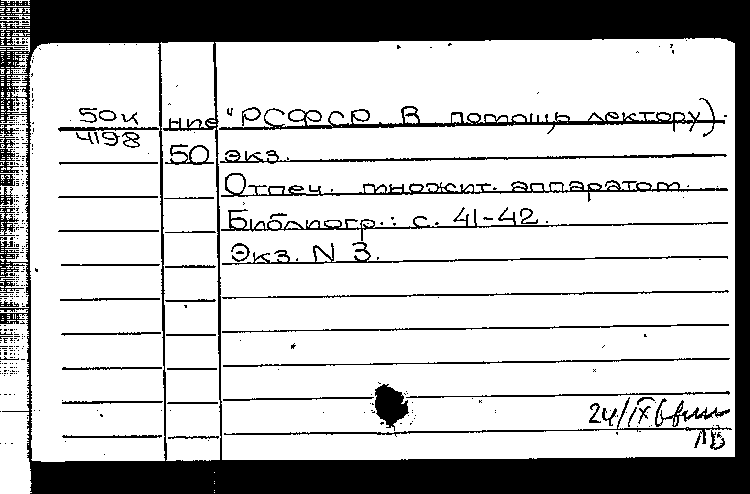 50к ние "РСФСР. В помощь лектору).
4198
50 экз.
Отпеч. множит. аппаратом.
Библиогр.: с. 41-42.
Экз. N 3.
24/IX
ЛВ